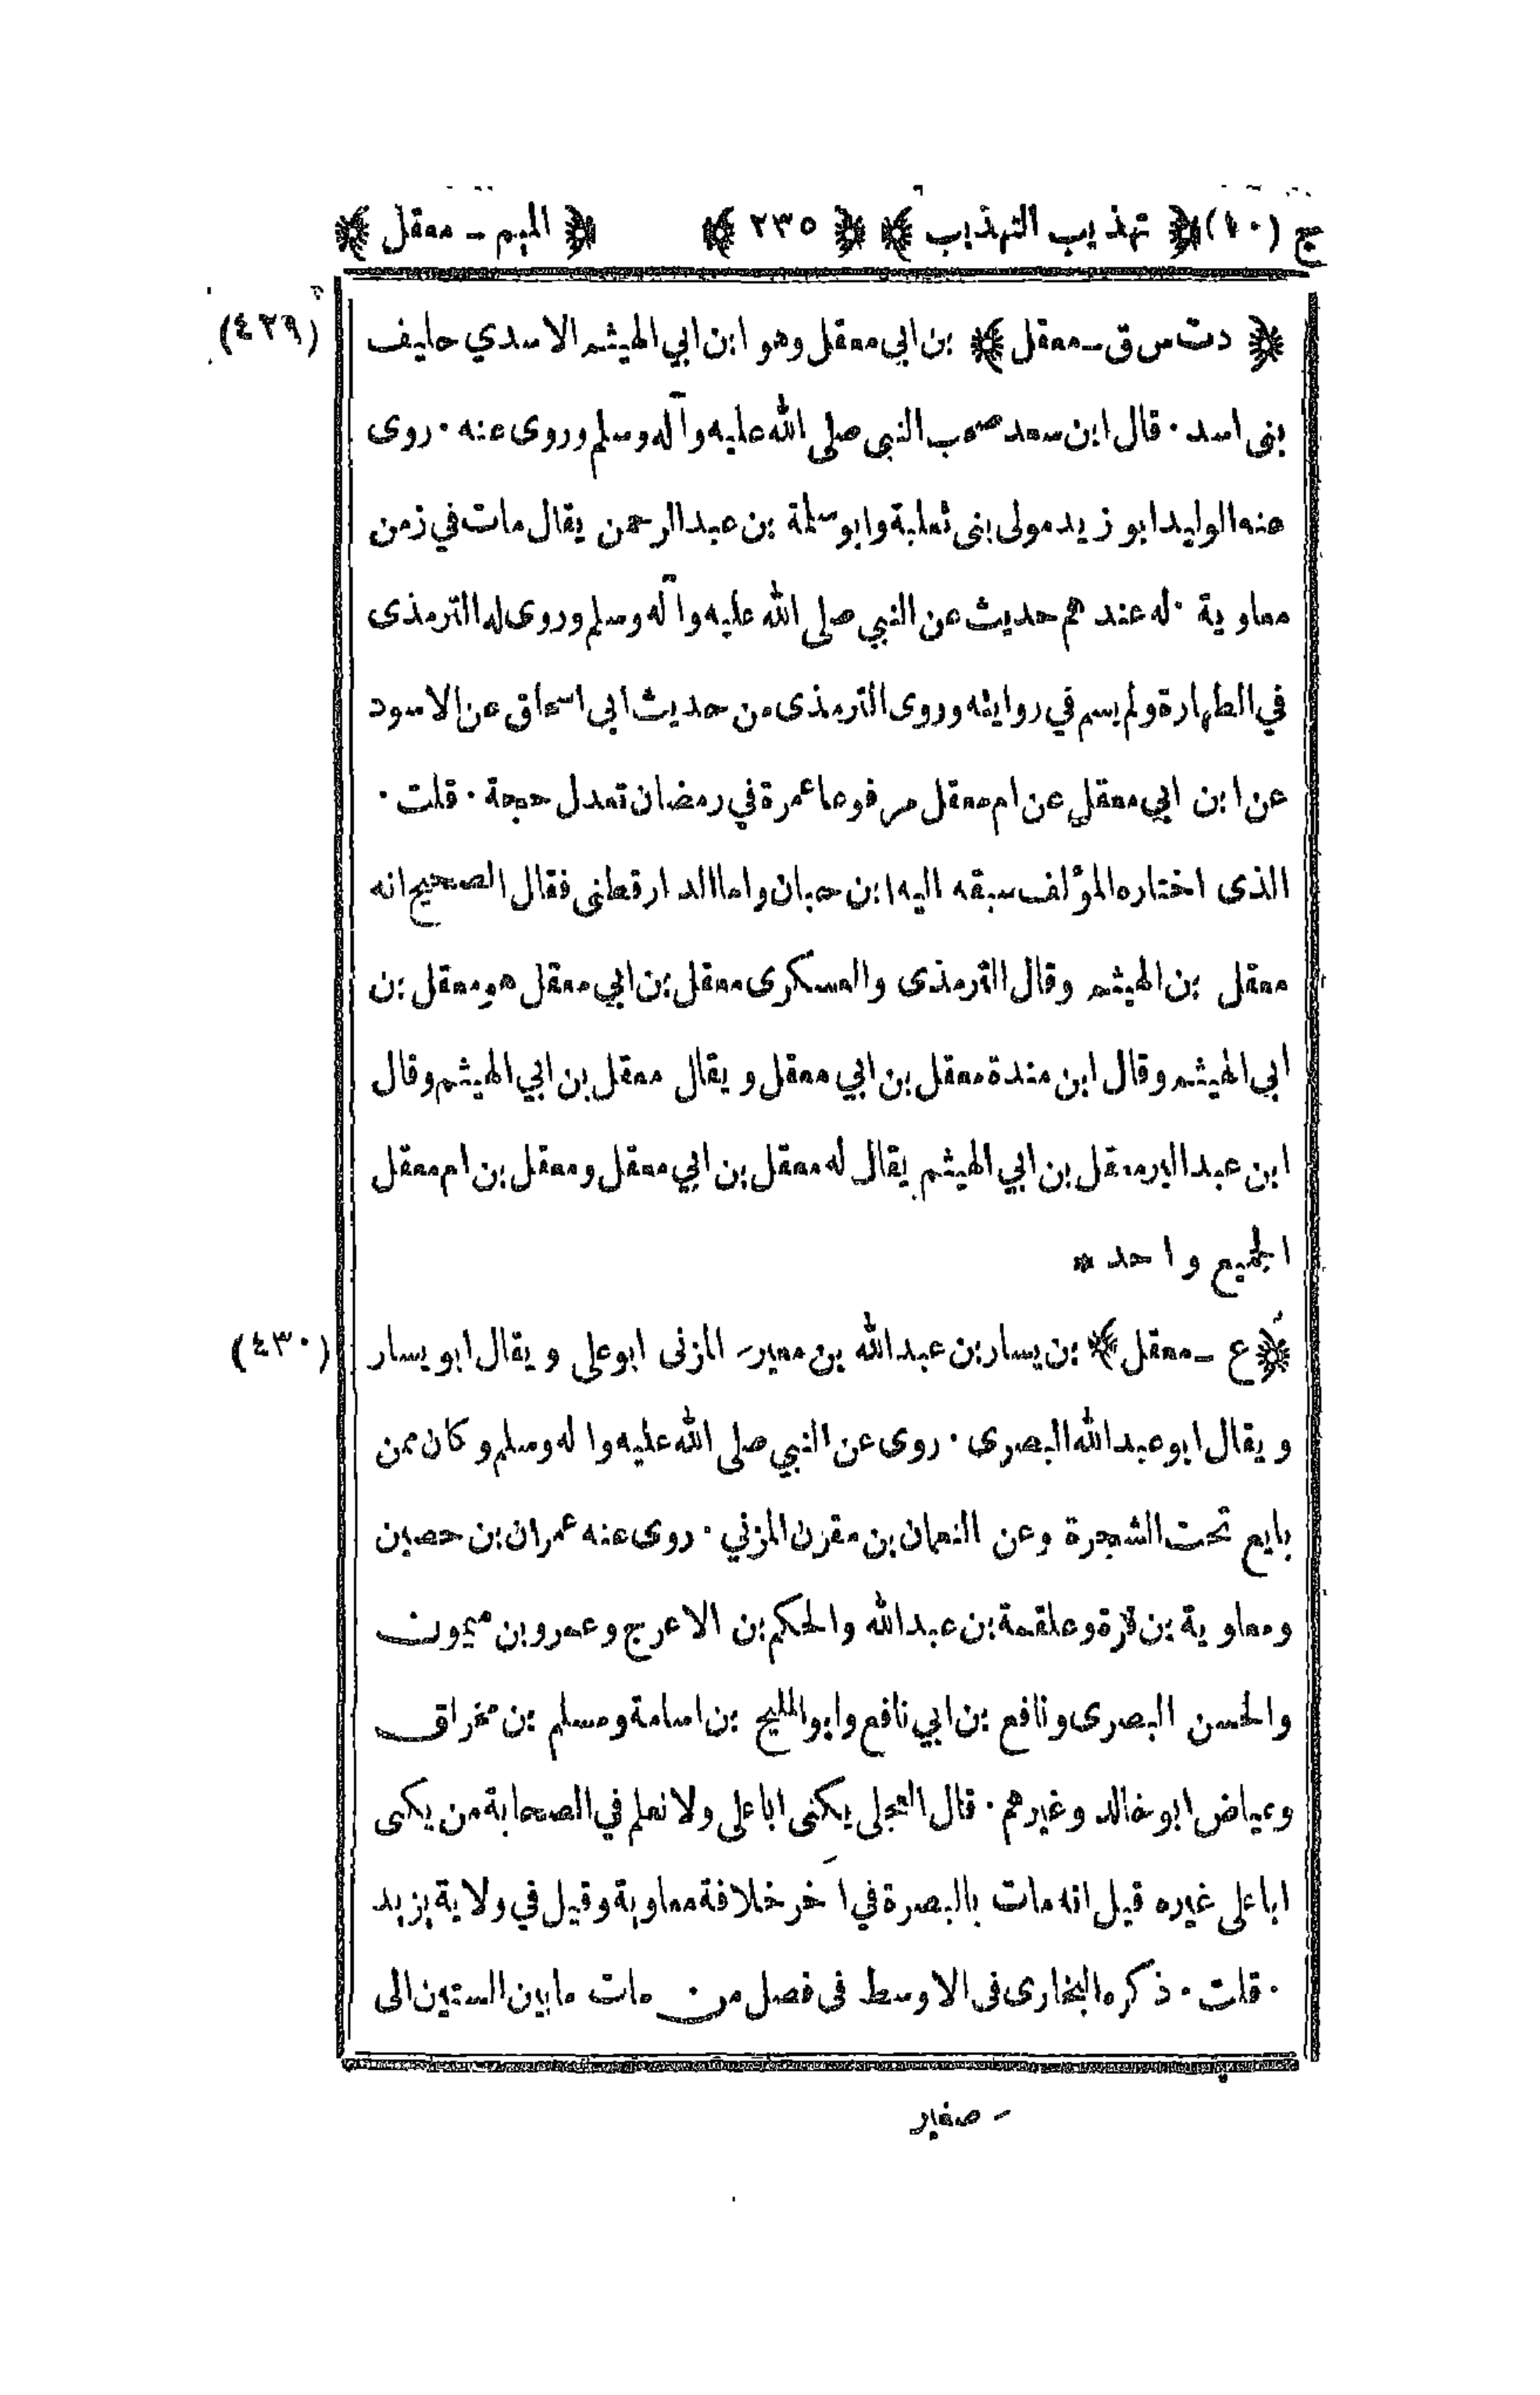 ج (١٠) ﴿ تهذيب التهذيب ﴾ ﴿ ٢٣٥ ﴾ ﴿ الميم ـ معقل ﴾
﴿ دت س ق ـ معقل ﴾ بن ابي معقل وهو ابن ابي الهيثم الاسدي حليف (٤٢٩)
بنى اسد ٠ قال ابن سعد صحب النبى صلى الله عليه وآله وسلم وروى عنه ٠ روى
عنه الوليد ابو زيد مولى بنى ثعلبة وابو سلمة بن عبد الرحمن يقال مات في زمن
معاوية ٠ له عندهم حديث عن النبي صلى الله عليه وآله وسلم وروى له الترمذى
في الطهارة ولم يسم في روايته وروى الترمذى من حديث ابى اسحاق عن الاسود
عن ابن ابي معقل عن ام معقل مرفوعا عمرة في رمضان تعدل حجة ٠ قلت ٠
الذى اختاره المؤلف سبقه اليه ابن حبان واما الدارقطنى فقال الصحيح انه
معقل بن الهيثم وقال الترمذى والعسكرى معقل بن ابي معقل هو معقل بن
ابى الهيثم وقال ابن مندة معقل بن ابي معقل ويقال معقل بن ابي الهيثم وقال
ابن عبد البر معقل بن ابي الهيثم يقال له معقل بن ابي معقل ومعقل بن ام معقل
الجميع واحد *
﴿ ع ـ معقل ﴾ بن يسار بن عبد الله بن معبر ـَ المزنى ابو على ويقال ابو يسار (٤٣٠)
ويقال ابو عبد الله البصرى ٠ روى عن النبي صلى الله عليه واله وسلم وكان ممن
بايع تحت الشجرة وعن النعمان بن مقرن المزني ٠ روى عنه عمران بن حصين
ومعاوية بن قرة وعلقمة بن عبد الله والحكم بن الاعرج وعمرو بن ميمون
والحسن البصرى ونافع بن ابي نافع وابو المليح بن اسامة ومسلم بن مخراق
وعياض ابو خالد وغيرهم ٠ قال العجلى يكنى ابا على ولا نعلم في الصحابة من يكنى
ابا على غيره قيل انه مات بالبصرة في آخر خلافة معاوية وقيل في ولاية يزيد
٠ قلت ٠ ذكره البخارى فى الاوسط فى فصل من مات ما بين الستين الى
ـَ صغير